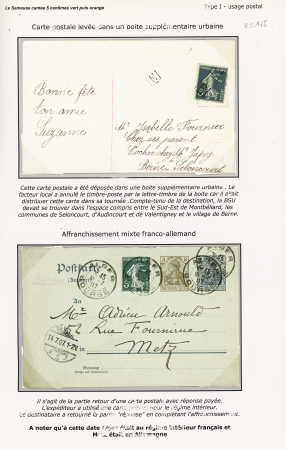 La Semeuse camée 5 centimes vert puis orange
Type I - usage postal
Carte postale levée dans un boite supplémentaire urbaine
Bonne fête
ton amie
Suzanne
Isabelle Fournier
Cette carte postale a été déposée dans une boite supplémentaire urbaine . Le
facteur local a annulé le timbre-poste par la lettre-timbre de la boite car il allait
distribuer cette carte dans sa tournée .Compte-tenu de la destination, la BSU
devait se trouver dans l'espace compris entre le Sud-Est de Montbéliard, les
communes de Seloncourt, d'Audincourt et de Valentigney et le village de Berne.
Affranchissement mixte franco-allemand
Postkarte
An
Mr Adrien Arnould
52 Rue Fournirue
Metz
Wohnung
Il s'agit de la partie retour d'une carte postale avec réponse payée.
L'expéditeur a utilisé une carte pour le régime intérieur.
Le destinataire a retourné la partie "réponse" en complétant l'affranchissement.
A noter qu'à cette date Alger était au régime intérieur français et
Metz était en Allemagne